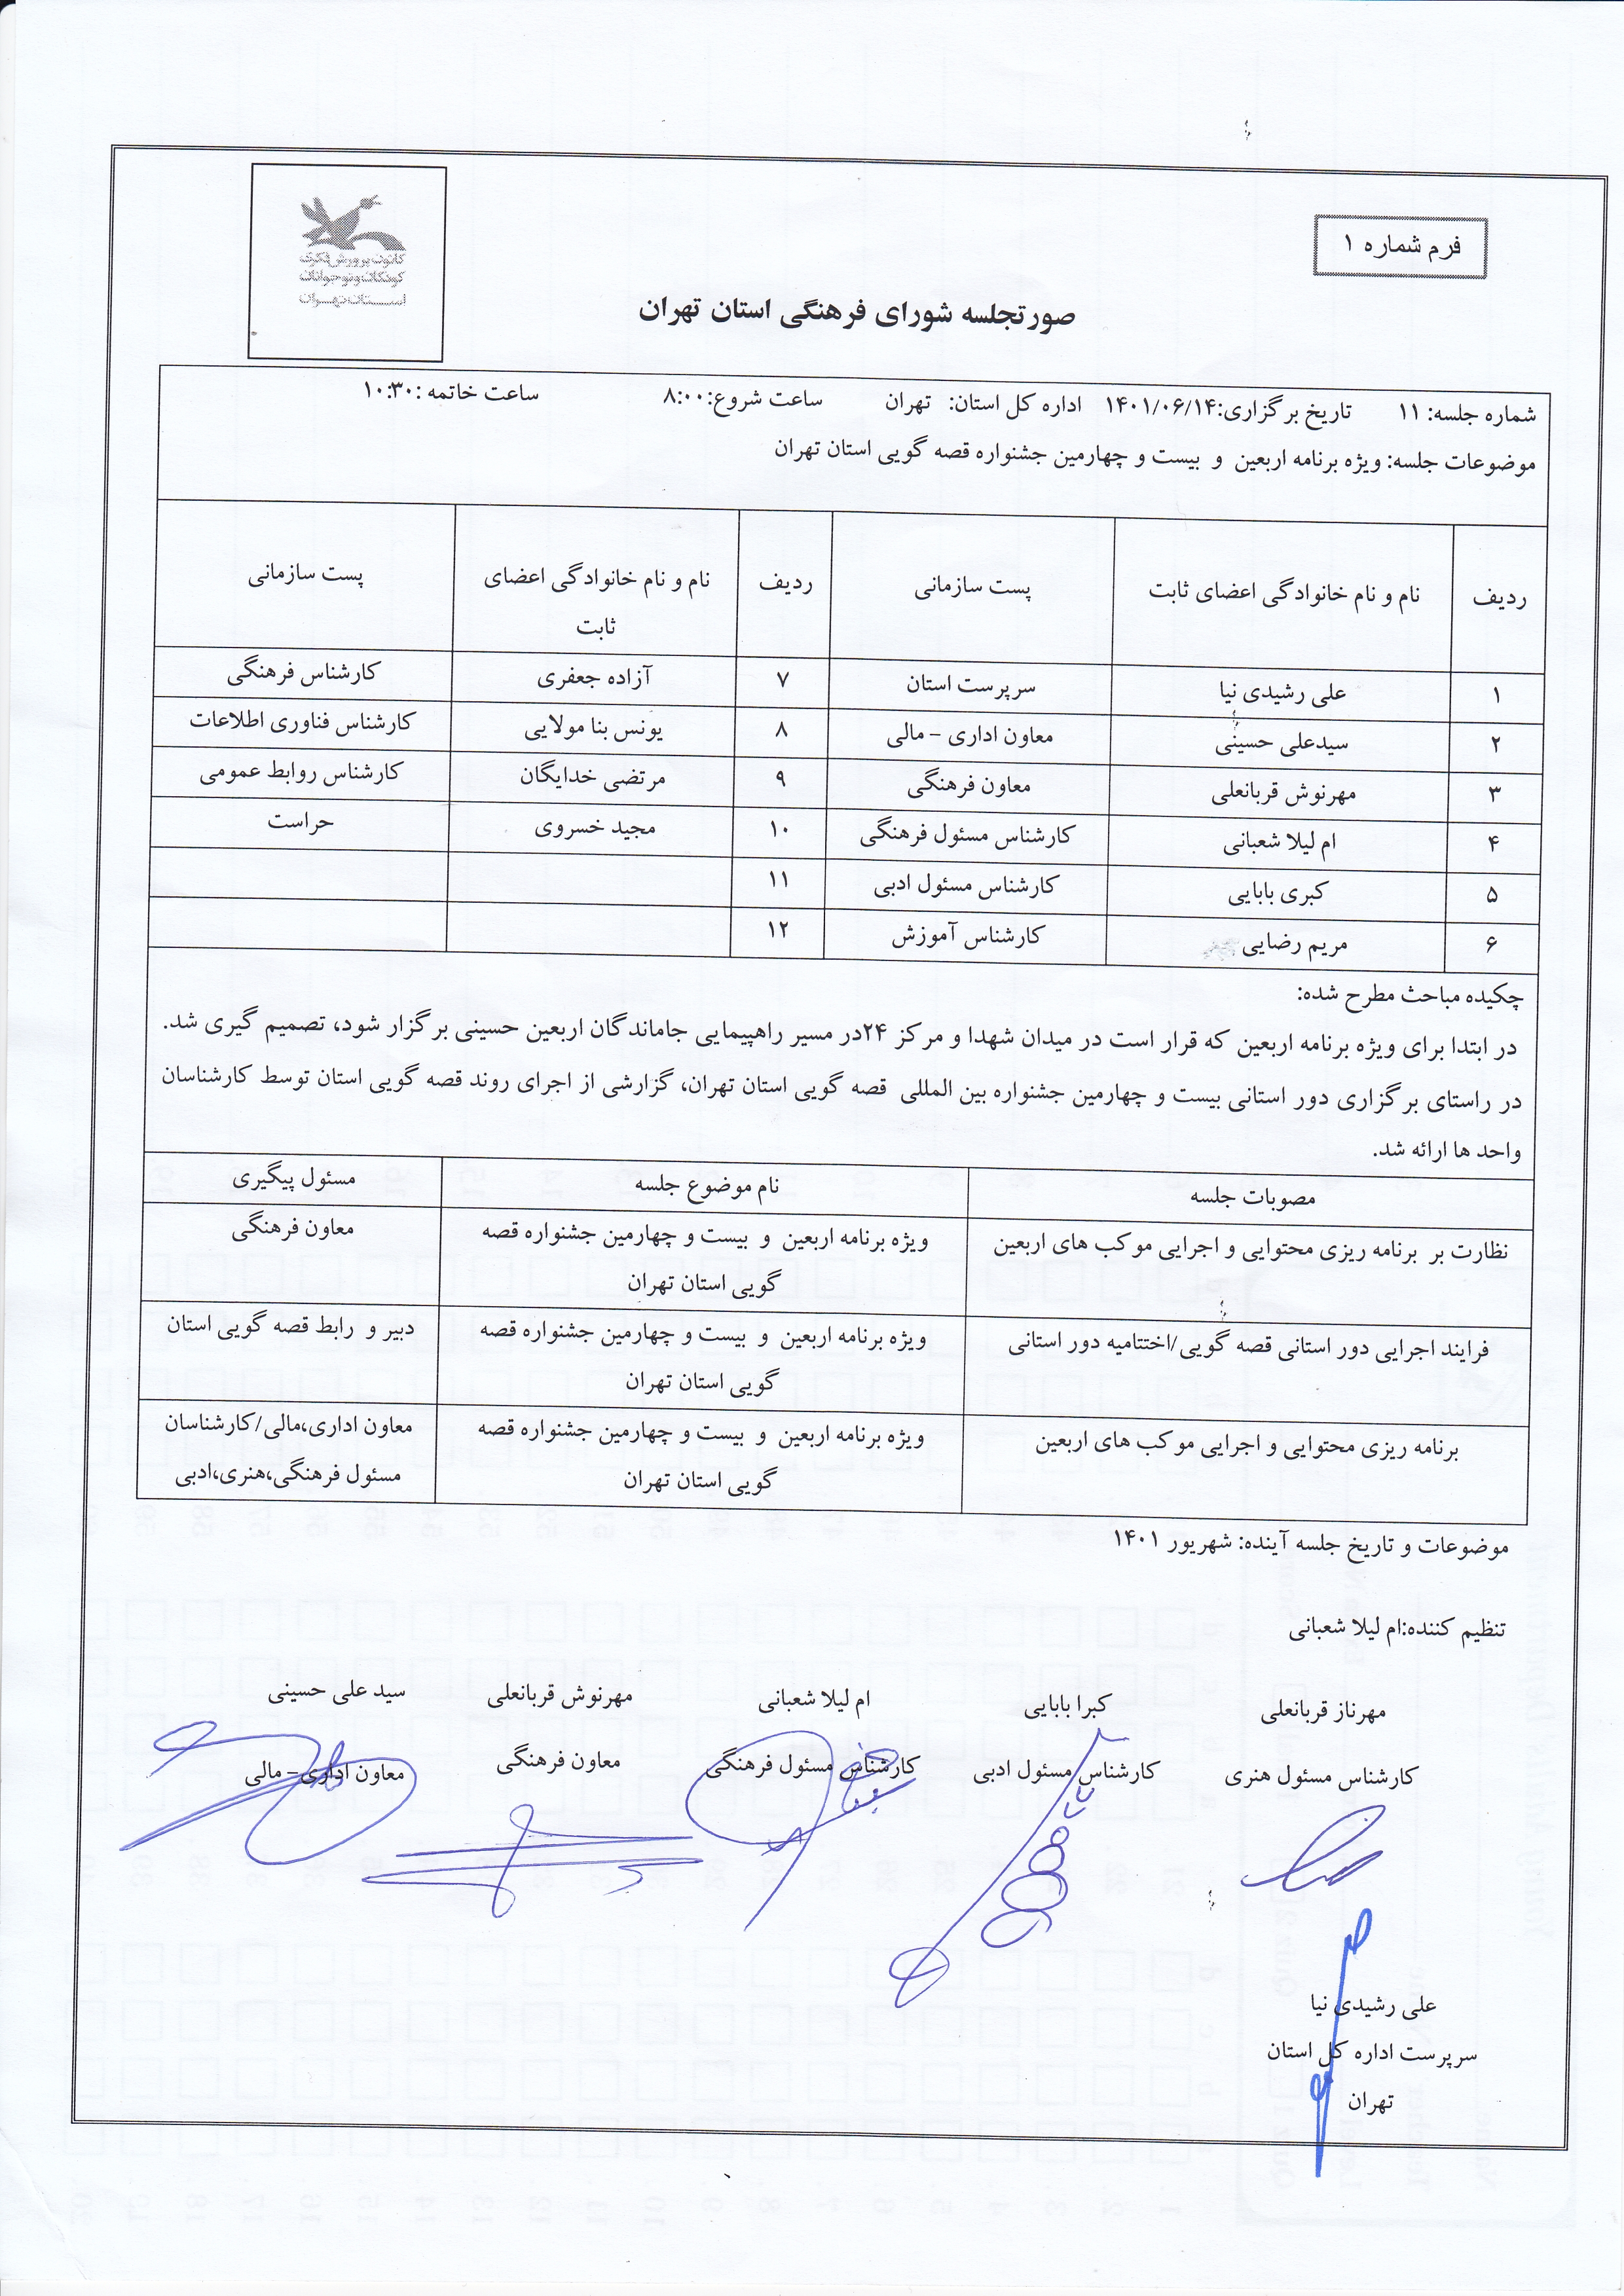 فرم شماره ۱
کانون پرورش فکری
کودکان و نوجوانان
استان تهران
صورتجلسه شورای فرهنگی استان تهران
شماره جلسه: ۱۱ تاریخ برگزاری:۱۴۰۱/۰۶/۱۴ اداره کل استان: تهران ساعت شروع:۸:۰۰ ساعت خاتمه :۱۰:۳۰
موضوعات جلسه: ویژه برنامه اربعین و بیست و چهارمین جشنواره قصه گویی استان تهران
ردیف نام و نام خانوادگی اعضای ثابت پست سازمانی ردیف نام و نام خانوادگی اعضای پست سازمانی
ثابت
۱ علی رشیدی نیا سرپرست استان ۷ آزاده جعفری کارشناس فرهنگی
۲ سیدعلی حسینی معاون اداری – مالی ۸ یونس بنا مولایی کارشناس فناوری اطلاعات
۳ مهرنوش قربانعلی معاون فرهنگی ۹ مرتضی خدایگان کارشناس روابط عمومی
۴ ام لیلا شعبانی کارشناس مسئول فرهنگی ۱۰ مجید خسروی حراست
۵ کبری بابایی کارشناس مسئول ادبی ۱۱
۶ مریم رضایی کارشناس آموزش ۱۲
چکیده مباحث مطرح شده:
در ابتدا برای ویژه برنامه اربعین که قرار است در میدان شهدا و مرکز ۲۴در مسیر راهپیمایی جاماندگان اربعین حسینی برگزار شود، تصمیم گیری شد.
در راستای برگزاری دور استانی بیست و چهارمین جشنواره بین المللی قصه گویی استان تهران، گزارشی از اجرای روند قصه گویی استان توسط کارشناسان
واحد ها ارائه شد.
مصوبات جلسه نام موضوع جلسه مسئول پیگیری
نظارت بر برنامه ریزی محتوایی و اجرایی موکب های اربعین ویژه برنامه اربعین و بیست و چهارمین جشنواره قصه معاون فرهنگی
گویی استان تهران
فرایند اجرایی دور استانی قصه گویی/اختتامیه دور استانی ویژه برنامه اربعین و بیست و چهارمین جشنواره قصه دبیر و رابط قصه گویی استان
گویی استان تهران
برنامه ریزی محتوایی و اجرایی موکب های اربعین ویژه برنامه اربعین و بیست و چهارمین جشنواره قصه معاون اداری،مالی/کارشناسان
گویی استان تهران مسئول فرهنگی،هنری،ادبی
موضوعات و تاریخ جلسه آینده: شهریور ۱۴۰۱
تنظیم کننده:ام لیلا شعبانی
مهرناز قربانعلی کبرا بابایی ام لیلا شعبانی مهرنوش قربانعلی سید علی حسینی
کارشناس مسئول هنری کارشناس مسئول ادبی کارشناس مسئول فرهنگی معاون فرهنگی معاون اداری– مالی
علی رشیدی نیا
سرپرست اداره کل استان
تهران